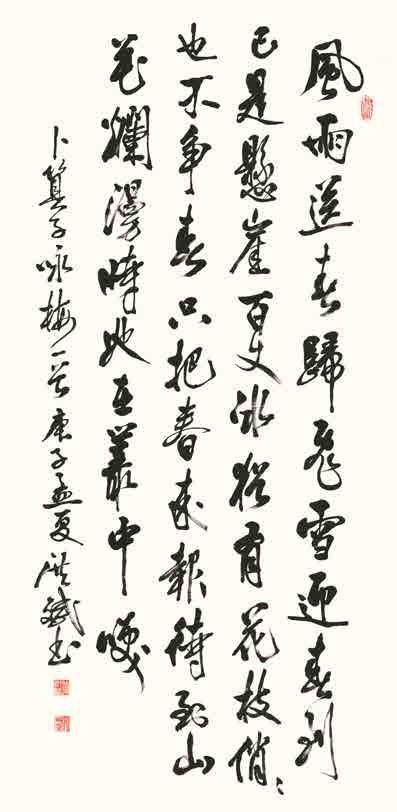 風雨送春歸飛雪迎春到
已是懸崖百丈冰猶有花枝俏〻
也不爭春只把春來報待到山
花爛漫時她在叢中咲
卜算子咏梅一首庚子孟夏斌书